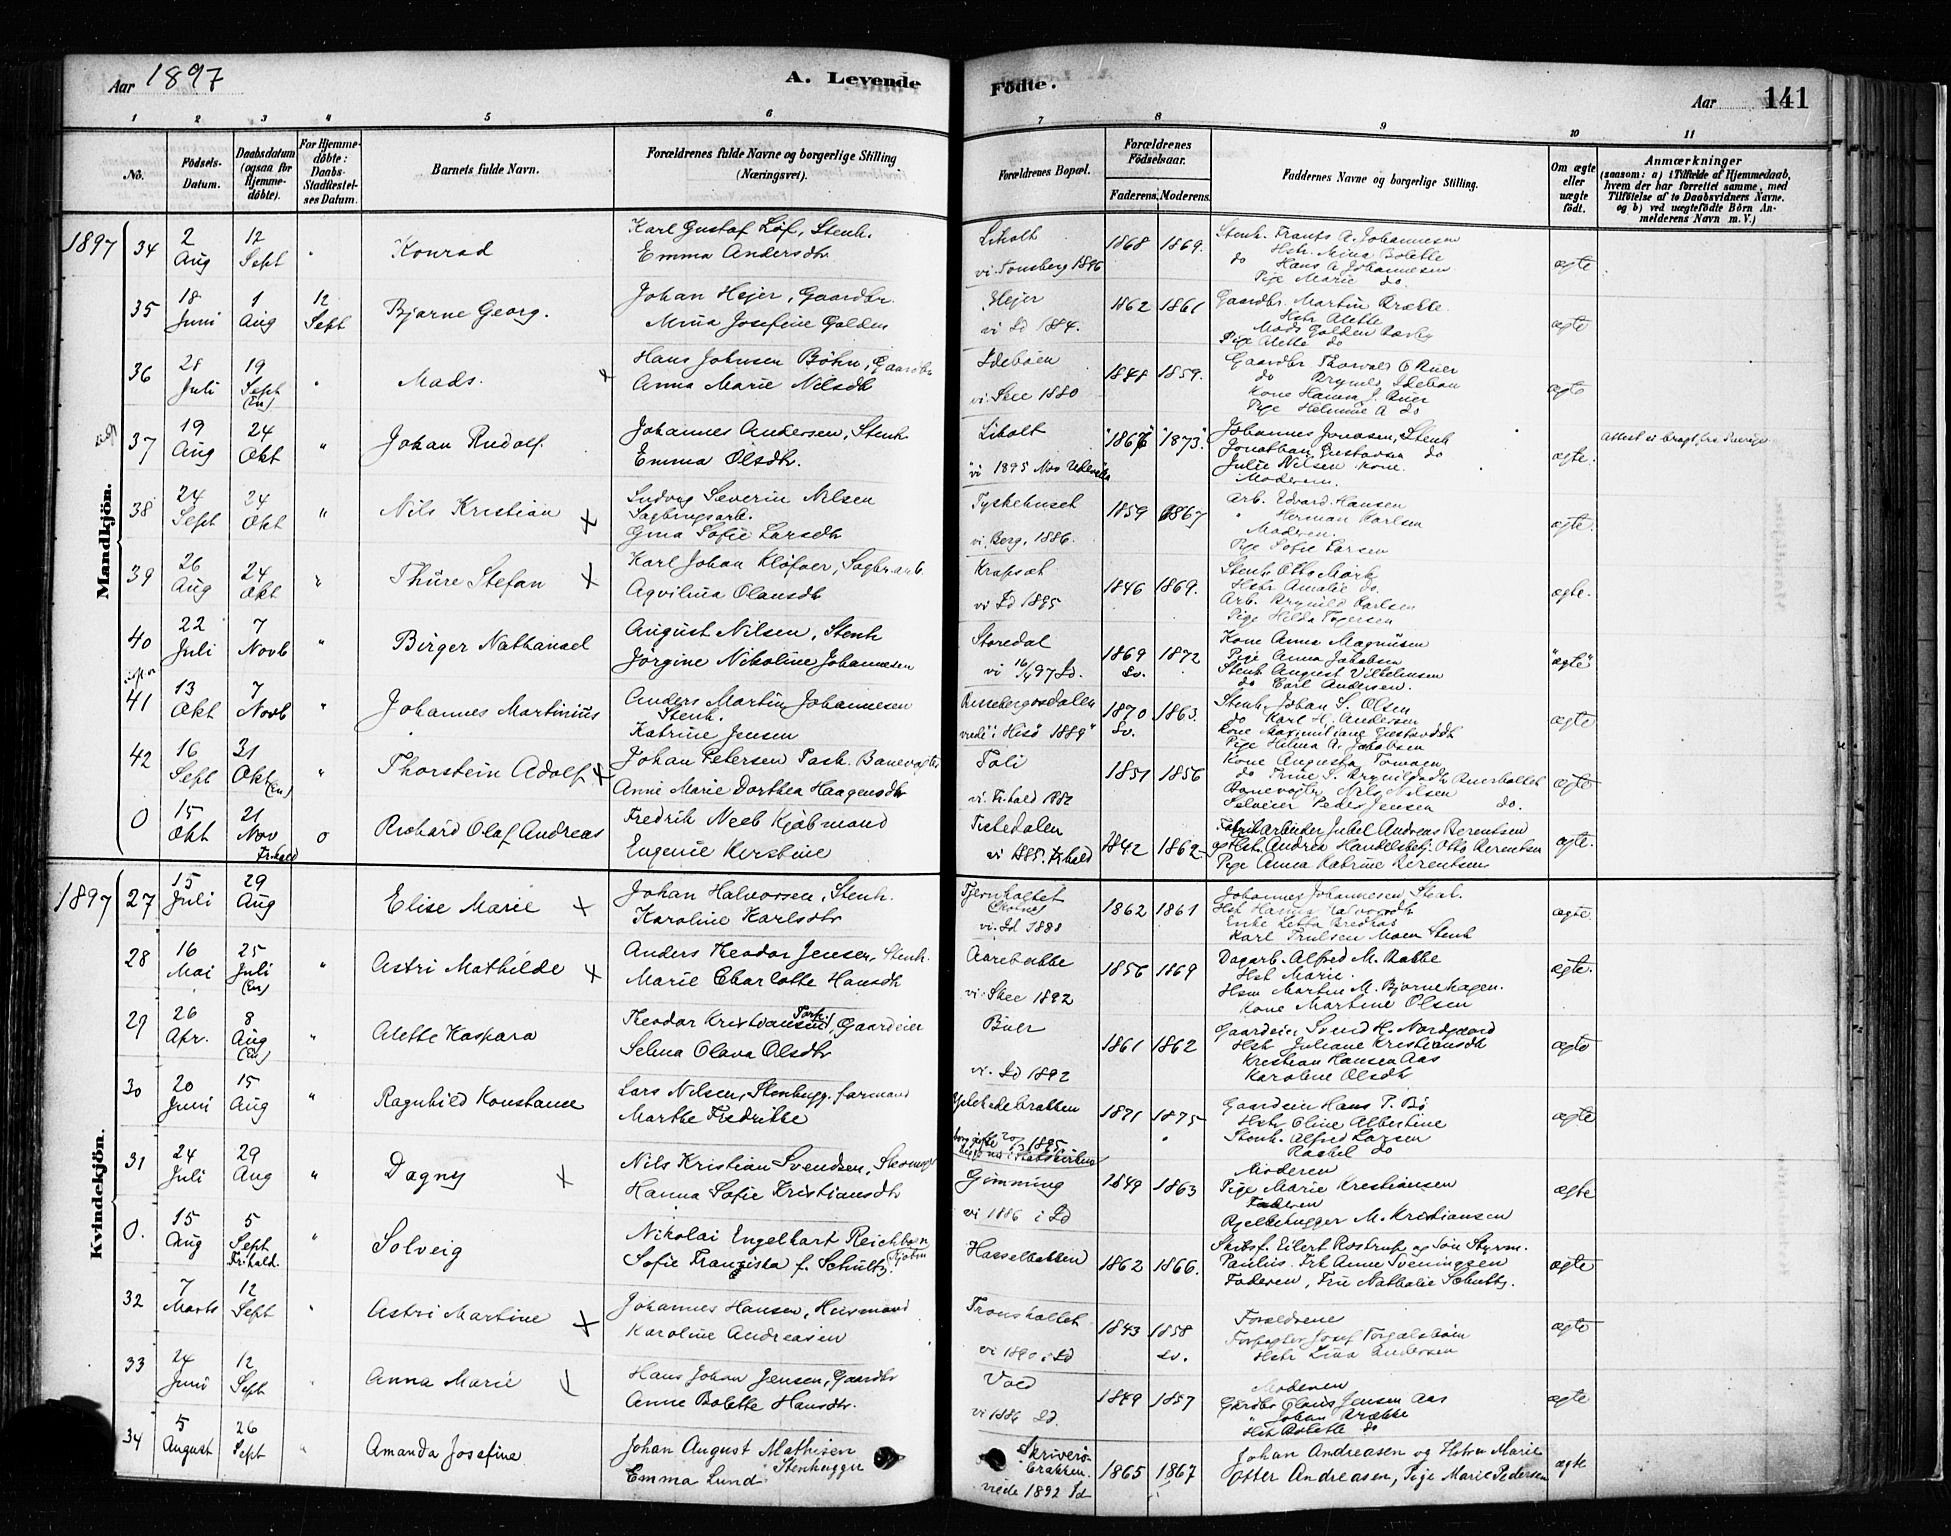 Aar 1897
A. Levende
Födte.
Aar
141
1
2
3
4
5
6
7
8
9
10
11
No.
Födsels-Datum.
Daabsdatum (ogsaa for Hjemme-döbte).
For Hjemme-döbte: Daabs-Stadfæstel-ses Datum.
Barnets fulde Navn.
Forældrenes fulde Navne og borgerlige Stilling (Næringsvei).
Forældrenes Bopæl.
Forældrenes Födselsaar.
Faderens. Moderens.
Faddernes Navne og borgerlige Stilling.
Om ægte eller uægte födt.
Anmærkninger
(saasom: a) i Tilfælde af Hjemmedaab,
hvem der har forrettet samme, med
Tilföielse af to Daabsvidners Navne.
og b) ved uægtefödte Börn An-
melderens Navn m. V.)
Mandkjön.
1897 34 2 Aug 12 Sept " Konrad
Karl Gustaf Löf, Stenh.
Emma Andersdtr
Liholt
vi. Tonsberg 1896
1868 1869.
Stenh. Frants A. Johannesen
Hstr. Mina Bolette
do Hans A Johannesen
Pige Marie do.
ægte
35 18 Juni 1 Aug 12 Sept Bjarne Georg.
Johan Hejer, Gaardbr.
Mina Josefine Golden
Hejer
vi Id 1884.
1862 1861
Gaardbr. Martin Brække
Hstr Alette
Mads Golden
Pige Alette do
ægte
36 28 Juli 19 Sept (En) " Mads.
Hans Johnsen Böhn, Gaardbr
Anna Marie Nilsdtr
Ideböen
vi. Skee 1880
1848 1859.
Gaardbr Thorvald O Buer
do Brynild Ideböen
Kone Hanna J. Buer
Pige Helmine A do
ægte
37 19 Aug 24 Okt " Johan Rudolf.
Johannes Andersen, Stenh
Emma Olsdtr.
Liholt
vi 1895 Nov Udevalla
"1867" "1873."
Johannes Jonasen, Stenh
Jonathan Gustavsen do
Julie Nilsen kone.
Moderen.
ægte.
Attest ei bragt fra Sverige
38 24 Sept 24 Okt " Nils Kristian
Ludvig Severin Nilsen
Sagbrugsarb.
Gina Sofie Larsdtr
Tyskehuset
vi. Berg, 1886.
1859 1867
Arb. Edvard Hansen
" Herman Karlsen
Moderen.
Pige Sofie Larsen
ægte.
39 26 Aug 24 Okt " Thure Stefan
Karl Johan Klöfver, Sagbr.arb.
Aqvilina Olausdtr
Krapsæt
vi Id 1895
1846 1869.
Stenh. Otto Mörk
Hstr Amalie do.
Arb. Brynild Karlsen
Pige Hilda Torgersen
ægte.
40 22 Juli 7 Novb " Birger Nathanael
August Nilsen, Stenh
Jörgine Nikoline Johannesen
Storedal
vi 16/4 97 Id.
1869 Sv. 1872
Kone Anna Magnusen
Pige Anna Jakobsen
Stenh August Vilhelmsen
do Carl Andersen.
"ægte"
41 13 Okt 7 Novb " Johannes Martinius
Anders Martin Johannesen
Stenh.
Katrine Jensen
viede "i Hisö 1889"
1870 Sv. 1863.
Stenh. Johan S. Olsen
do Karl H. Andersen
Kone Maximiliane Gustavsdtr
Pige Helma A. Jakobsen
ægte
42 16 Sept 31 Okt (En) " Thorstein Adolf
Johan Petersen Task. Banevogter
Anne Marie Dorthea Haagensdtr
Toli
vi. Fr.hald 1882
1851 1856
Kone Augusta
do Trine S. Brynildsdtr Buerholtet
Banevogter Nils Nilsen
Peder Jensen do.
ægte
0 15 Okt 21 Nov Fr.hald 0 Richard Olaf Andreas
Fredrik Neeb Kjöbmand
Eugenie Kirstine
Tistedalen
vi 1885. Fr.hald
1842 1862
Fabrikarbeider Juhel Andreas Berentsen
og Hstr. Andrea Handelsbetj. Otto Berentsen
Pige Anna Katrine Berentsen
ægte.
Kvindekjön.
1897 27 15 Juli 29 Aug Elise Marie
Johan Halvorsen, Stenh.
Karoline Karlsdtr
Tjernholtet
vi. Id 1888
1862 1861
Johannes Johannesen Stenh.
Hstr Hanna Halvorsdtr
Enke
Karl Trulsen Moen Stenh
ægte.
28 16 Mai 25 Juli (En) " Astri Mathilde
Anders Theodor Jensen, Stenh.
Marie Charlotte Hansdtr
Aarebakke
vi. Skee 1892
1856 1869
Dagarb. Alfred M. Bakke
Hst Marie.
Hsm Martin M. Bjørnehagen.
Kone Martine Olsen
ægte.
29 26 Apr. 8 Aug (En) " Alette Kaspara
Theodor Kristiansen Torp Gaardeier
Selma Olava Olsdtr
Buer
vi. Id 1892
1861 1862
Gaardeier Svend H. Nordgaard
Hstr Juliane Kristiansdtr
Kristian Hansen Aas
Karoline Olsdtr
ægte
30 20 Juni 15 Aug " Ragnhild Konstanse
Lars Nilsen, Stenhugg. formand
Marthe Fredrikke
borg. gifte 20/3 1895
1871 1875
Gaardeier Hans P. Bö
Hstr Oline Albertine
Stenh. Alfred Larsen
Rachel do
ægte
31 24 Juli 29 Aug " Dagny
Nils Kristian Svendsen, Stenhugg
Hanna Sofie Kristiansdtr
Gimming
vi 1886 i Id
1849 1863
Moderen
Pige Marie Kristiansen
Faderen
M. Kristiansen
ægte
0. 15 Aug 5 Sept Fr.hald. " Solveig
Nikolai Engelhart Reichborn Kjøbm
Sofie Franziska f. Schultz.
Hasselbakken
1862 1866.
Skibsf. Eilert Rostrup og Søn Styrm.
Paulus. Frk Anne Sveningsen
Faderen, Fru Nathalie Schultz.
ægte
32 7 Marts 12 Sept " Astri Martine
Johannes Hansen, Husmand
Karoline Andreasen
Tronsholtet
vi 1890 i Id
1843 1858 Sv.
Forældrene
Forpagter Josef Torgalsböen
Hstr Lina Andersen
ægte
33 24 Juni 12 Sept " Anna Marie
Hans Johan Jensen, Gaardbr
Anne Bolette Hansdtr.
Vold
vi 1886 Id.
1849 1857
Moderen
Gardbr Claus Jensen Aas
" Johan Brække
Hstr Bolette do
ægte
34 5 August 26 Sept " Amanda Josefine
Johan August Mathisen
Stenhugger
Emma Lund
Skriverö-
brakken.
viede 1892 Id
1865 1867
Johan Andreasen og Hstru Marie
Otter Andreasen, Pige Marie Pedersen
ægte